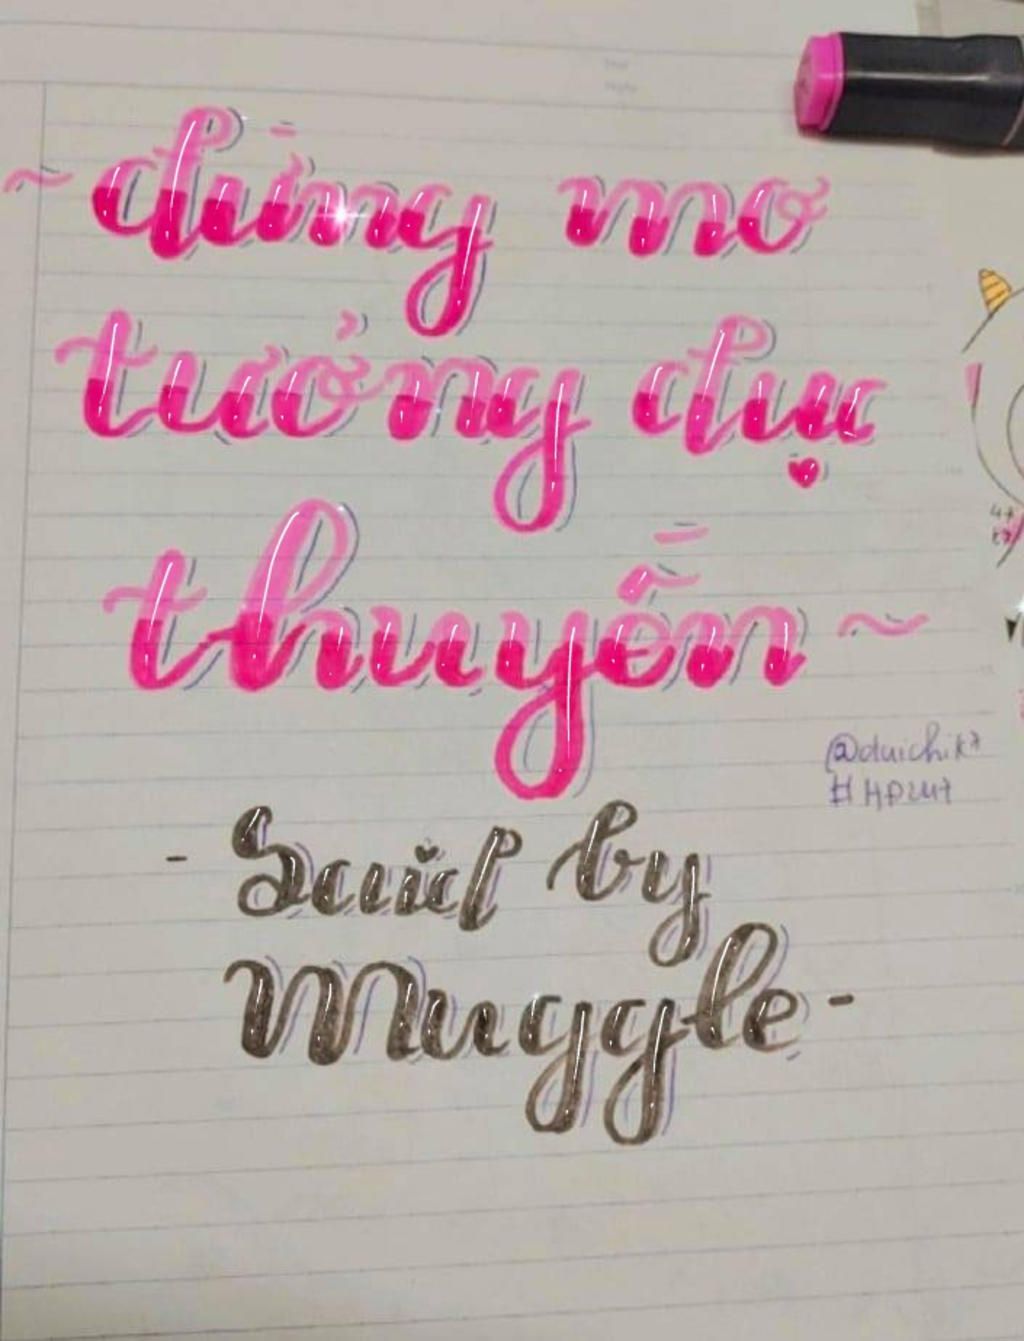 ~ đừng mơ
tưởng đục
thuyền ~
- Said by
Muggle -
@duichik7